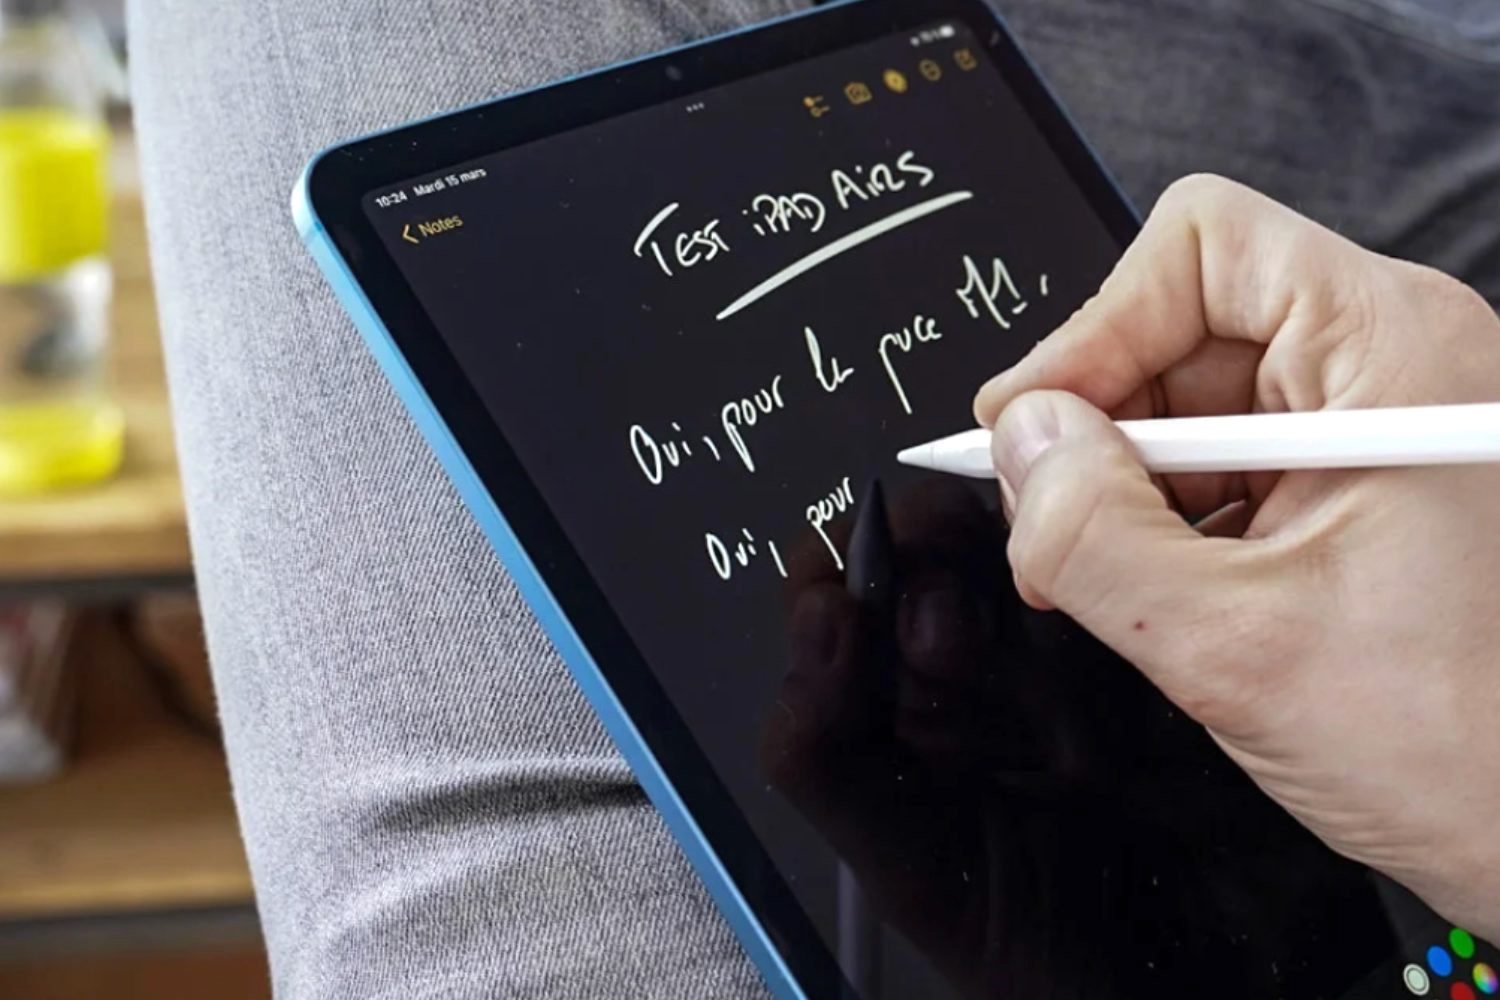 10:24 Mardi 15 mars
Notes
TEST iPAD AiR5
Oui, pour la puce M1,
Oui, pour